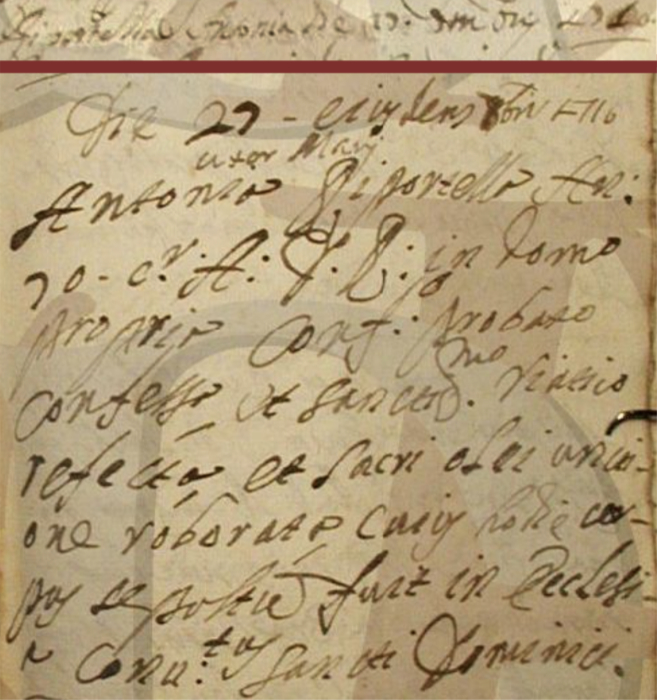 Die 27 - eiusdem 8bris 1716
uxor Marij
Antonia Piportella An:
70 - cr. A: S. R: in domo
propria Conf: probato
confessa et Sanctmo. Viatico
refecta et Sacri olei uncti-
one roborata Cuius hodie cor-
pus sepoltū fuit in Ecclesi-
a Convtus Sancti Dominici.